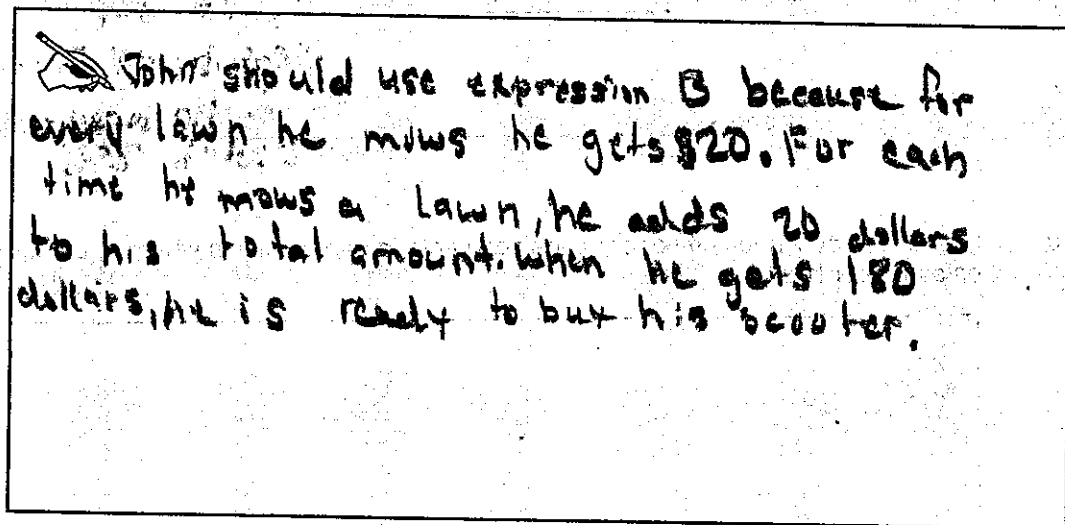 John should use expression B because for
every lawn he mows he gets $20. For each
time he mows a lawn, he adds 20 dollars
to his total amount. when he gets 180
dollars, he is ready to buy his scooter.